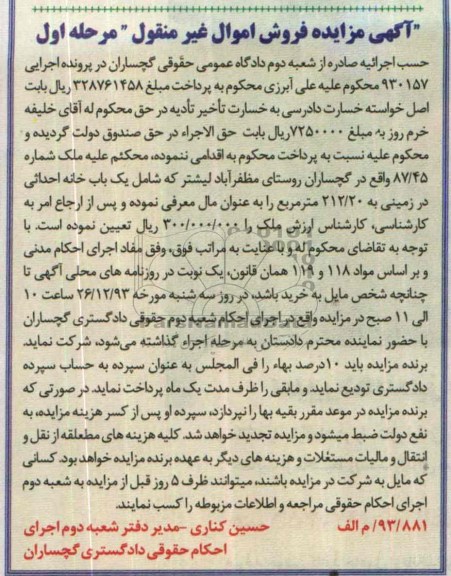 "آگهی مزایده فروش اموال غیر منقول" مرحله اول
حسب اجرائیه صادره از شعبه دوم دادگاه عمومی حقوقی گچساران در پرونده اجرایی
۹۳۰۱۵۷ محکوم علیه علی آبرزی محکوم به پرداخت مبلغ ۳۲۸۷۶۱۴۵۸ ریال بابت
اصل خواسته خسارت دادرسی به خسارت تأخیر تأدیه در حق محکوم له آقای خلیفه
خرم روز به مبلغ ۷۲۵۰۰۰۰ ریال بابت حق الاجراء در حق صندوق دولت گردیده و
محکوم علیه نسبت به پرداخت محکوم به اقدامی ننموده، محکئم علیه ملک شماره
۸۷/۴۵ واقع در گچساران روستای مظفرآباد لیشتر که شامل یک باب خانه احداثی
در زمینی به ۲۱۲/۲۰ مترمربع را به عنوان مال معرفی نموده و پس از ارجاع امر به
کارشناسی، کارشناس ارزش ملک را ۳۰۰/۰۰۰/۰۰۰ ریال تعیین نموده است. با
توجه به تقاضای محکوم له و با عنایت به مراتب فوق، وفق مفاد اجرای احکام مدنی
و بر اساس مواد ۱۱۸ و ۱۱۹ همان قانون، یک نوبت در روزنامه های محلی آگهی تا
چنانچه شخص مایل به خرید باشد، در روز سه شنبه مورخه ۲۶/۱۲/۹۳ ساعت ۱۰
الی ۱۱ صبح در مزایده واقع در اجرای احکام شعبه دوم حقوقی دادگستری گچساران
با حضور نماینده محترم دادستان به مرحله اجراء گذاشته می‌شود، شرکت نماید.
برنده مزایده باید ۱۰درصد بهاء را فی المجلس به عنوان سپرده به حساب سپرده
دادگستری تودیع نماید و مابقی را ظرف مدت یک ماه پرداخت نماید. در صورتی که
برنده مزایده در موعد مقرر بقیه بها را نپردازد، سپرده او پس از کسر هزینه مزایده، به
نفع دولت ضبط میشود و مزایده تجدید خواهد شد. کلیه هزینه های مطعلقه از نقل و
انتقال و مالیات مستغلات و هزینه های دیگر به عهده برنده مزایده خواهد بود. کسانی
که مایل به شرکت در مزایده باشند، میتوانند ظرف ۵ روز قبل از مزایده به شعبه دوم
اجرای احکام حقوقی مراجعه و اطلاعات مزبوطه را کسب نمایند.
۹۳/۸۸۱/ م الف حسین کناری -مدیر دفتر شعبه دوم اجرای
احکام حقوقی دادگستری گچساران